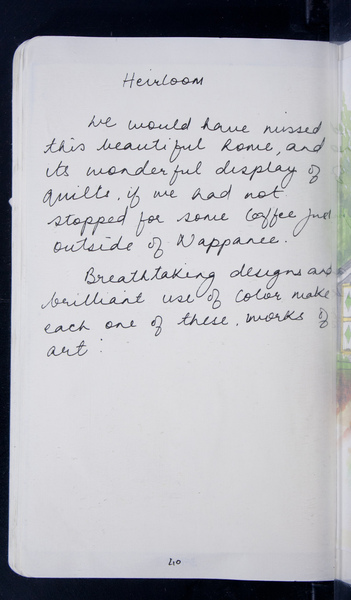 Heirloom
We would have missed
this beautiful home, and
its wonderful display of
quilts, if we had not
stopped for some Coffee just
outside of Nappanee.
Breathtaking designs and
brilliant use of color make
each one of these, works of
art.
40